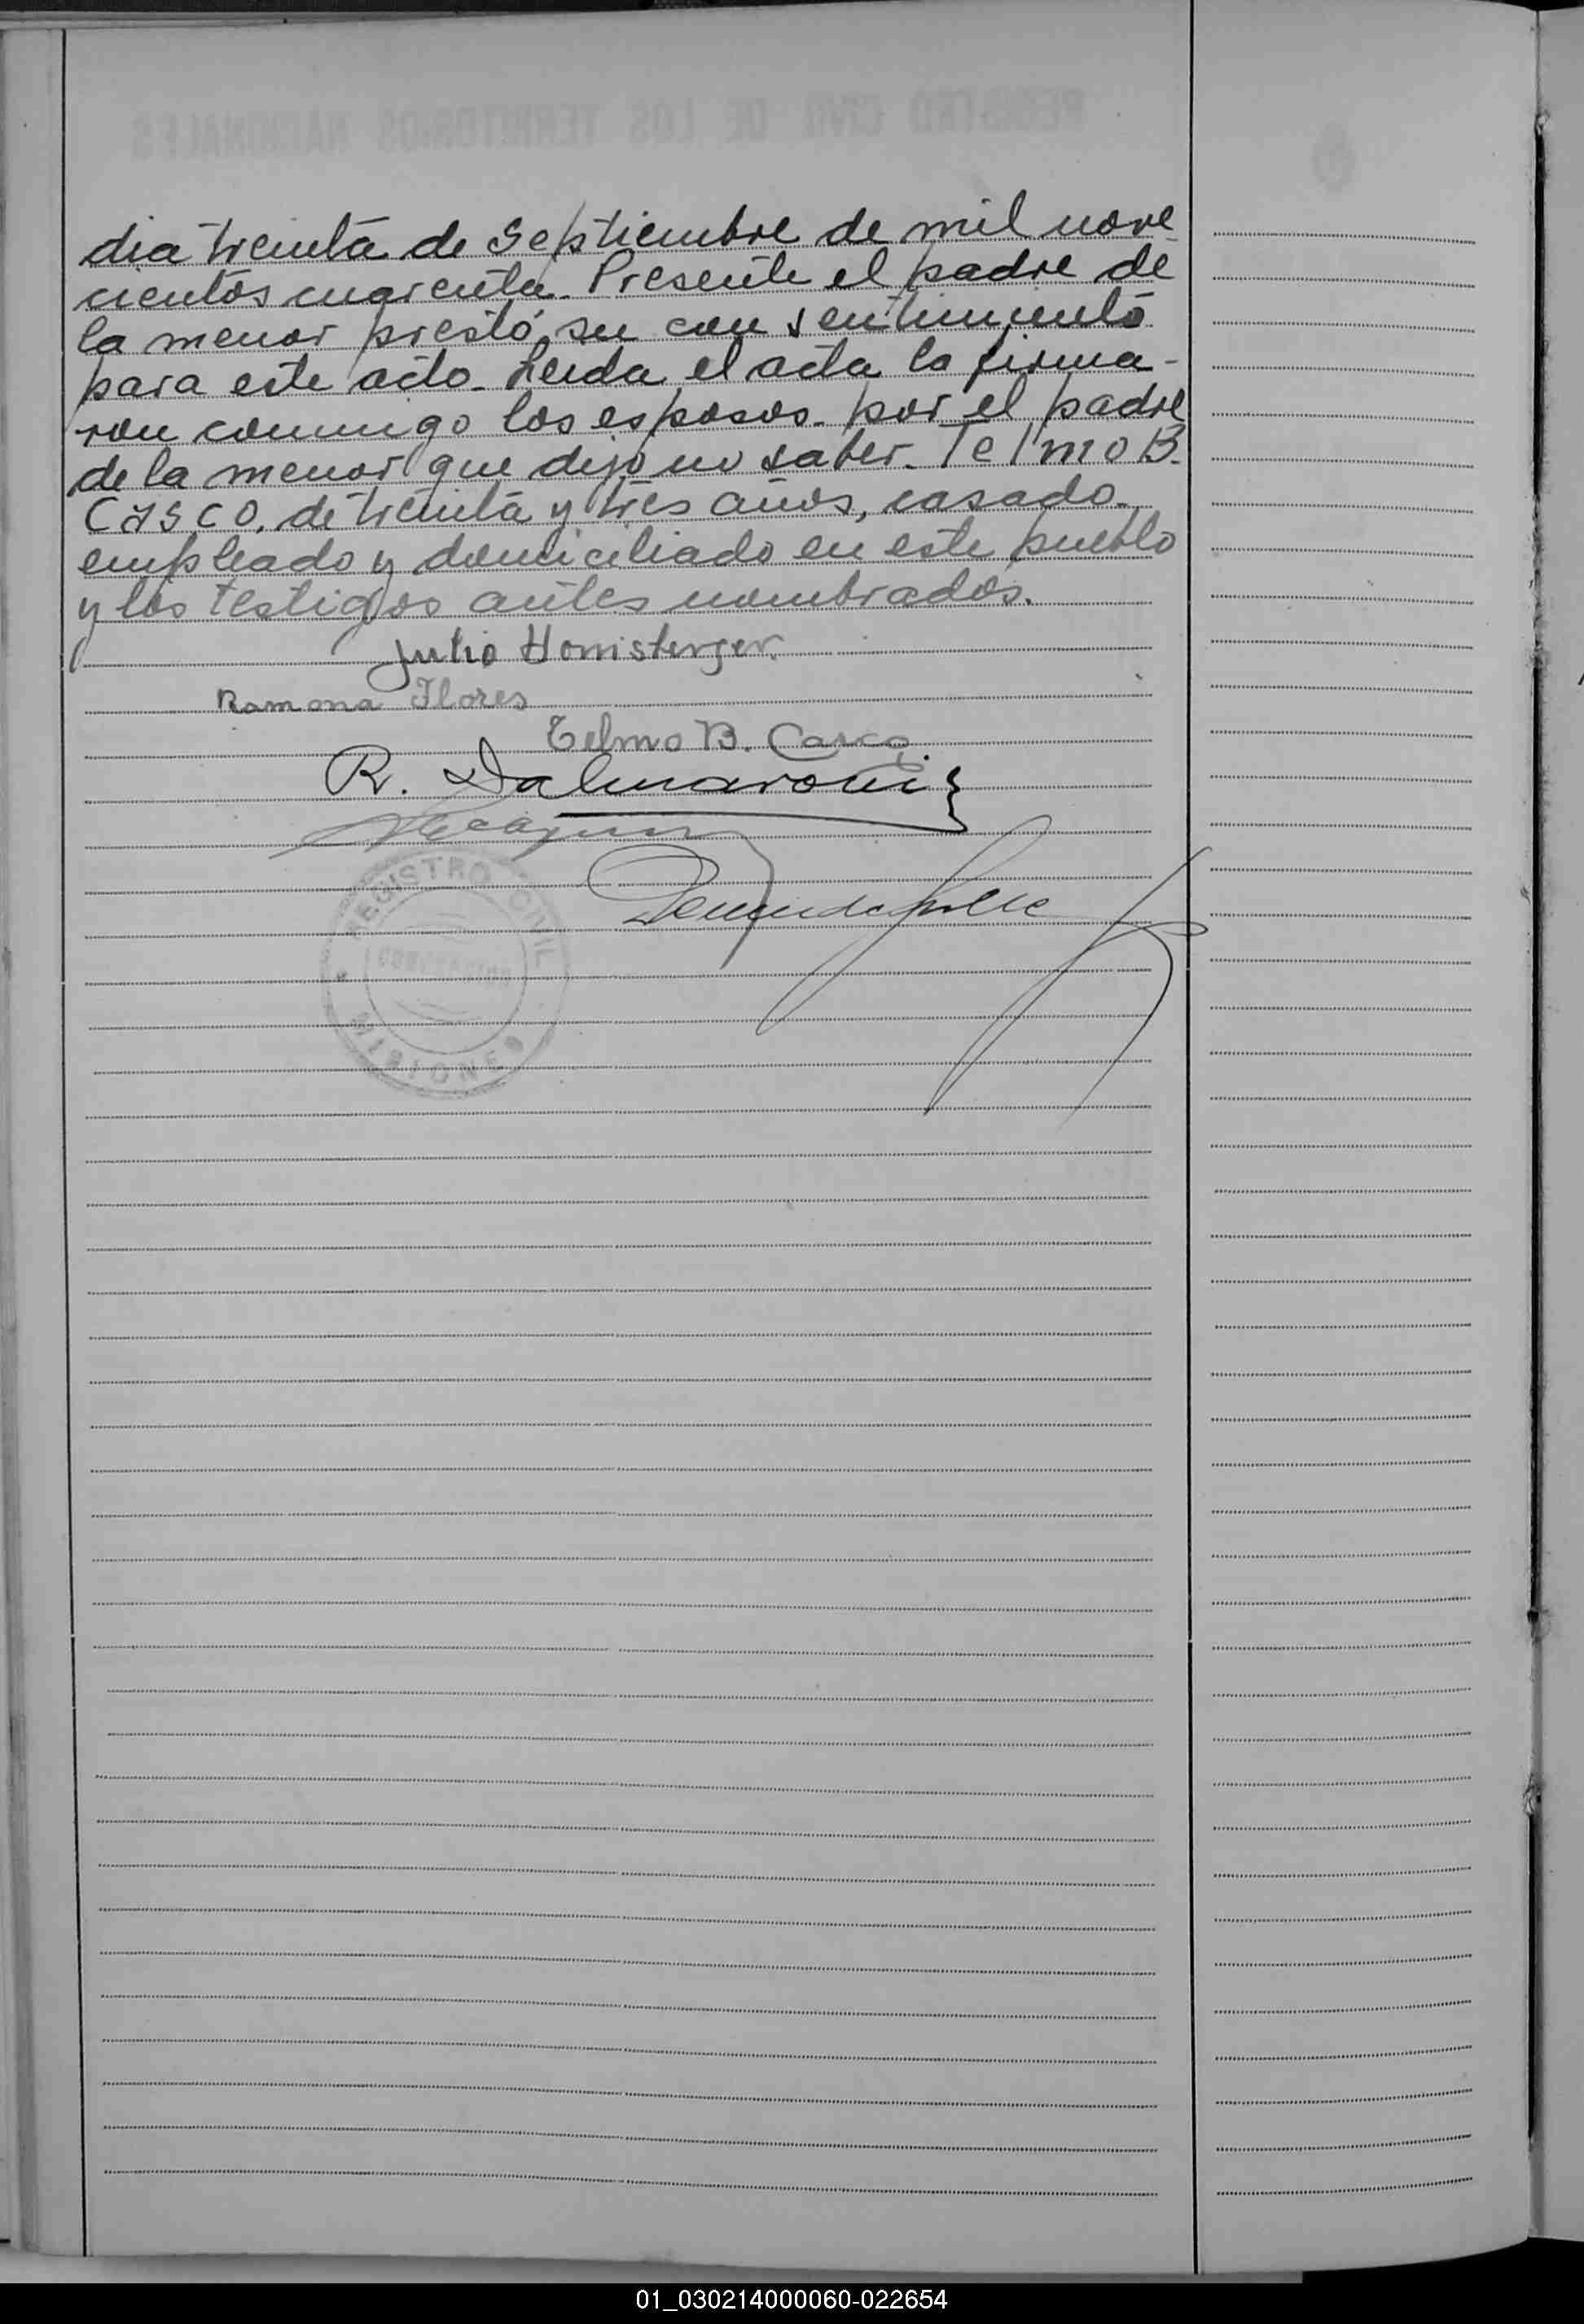 dia treinta de Septiembre de mil nove
cientos cuarenta. Presente el padre de
la menor prestó su consentimiento
para este acto. Leida el acta la firma-
ron conmigo los esposos. por el padre
de la menor que dijo no saber. Telmo B.
Casco, de treinta y tres años, casado.
empleado y domiciliado en este pueblo
y los testigos antes nombrados.
Julio Honisterger.
Ramona Flores
Telmo B. Casco
R. Dalmaroni
REGISTRO CIVIL
MISIONES
01_030214000060-022654